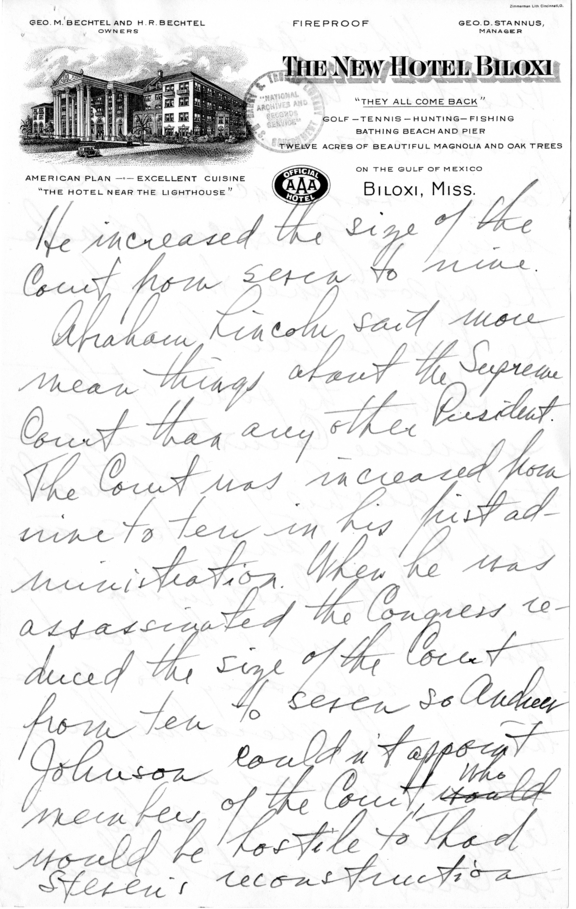 Zimmerman Lith Cincinnati, O.
GEO. M. BECHTEL AND H. R. BECHTEL
OWNERS
FIREPROOF
GEO. D. STANNUS,
MANAGER
THE NEW HOTEL BILOXI
"THEY ALL COME BACK"
GOLF – TENNIS – HUNTING – FISHING
BATHING BEACH AND PIER
TWELVE ACRES OF BEAUTIFUL MAGNOLIA AND OAK TREES
HARRY S. TRUMAN LIBRARY
"NATIONAL
ARCHIVES AND
RECORDS
SERVICE"
AMERICAN PLAN — EXCELLENT CUISINE
"THE HOTEL NEAR THE LIGHTHOUSE"
OFFICIAL
AAA
HOTEL
ON THE GULF OF MEXICO
BILOXI, MISS.
He increased the size of the
Court from seven to nine.
Abraham Lincoln said more
mean things about the Supreme
Court than any other President.
The Court was increased from
nine to ten in his first ad-
ministration. When he was
assassinated the Congress re-
duced the size of the Court
from ten to seven so Andrew
Johnson couldn't appoint
members of the Court, who would
would be hostile to Thad
Steven's reconstruction